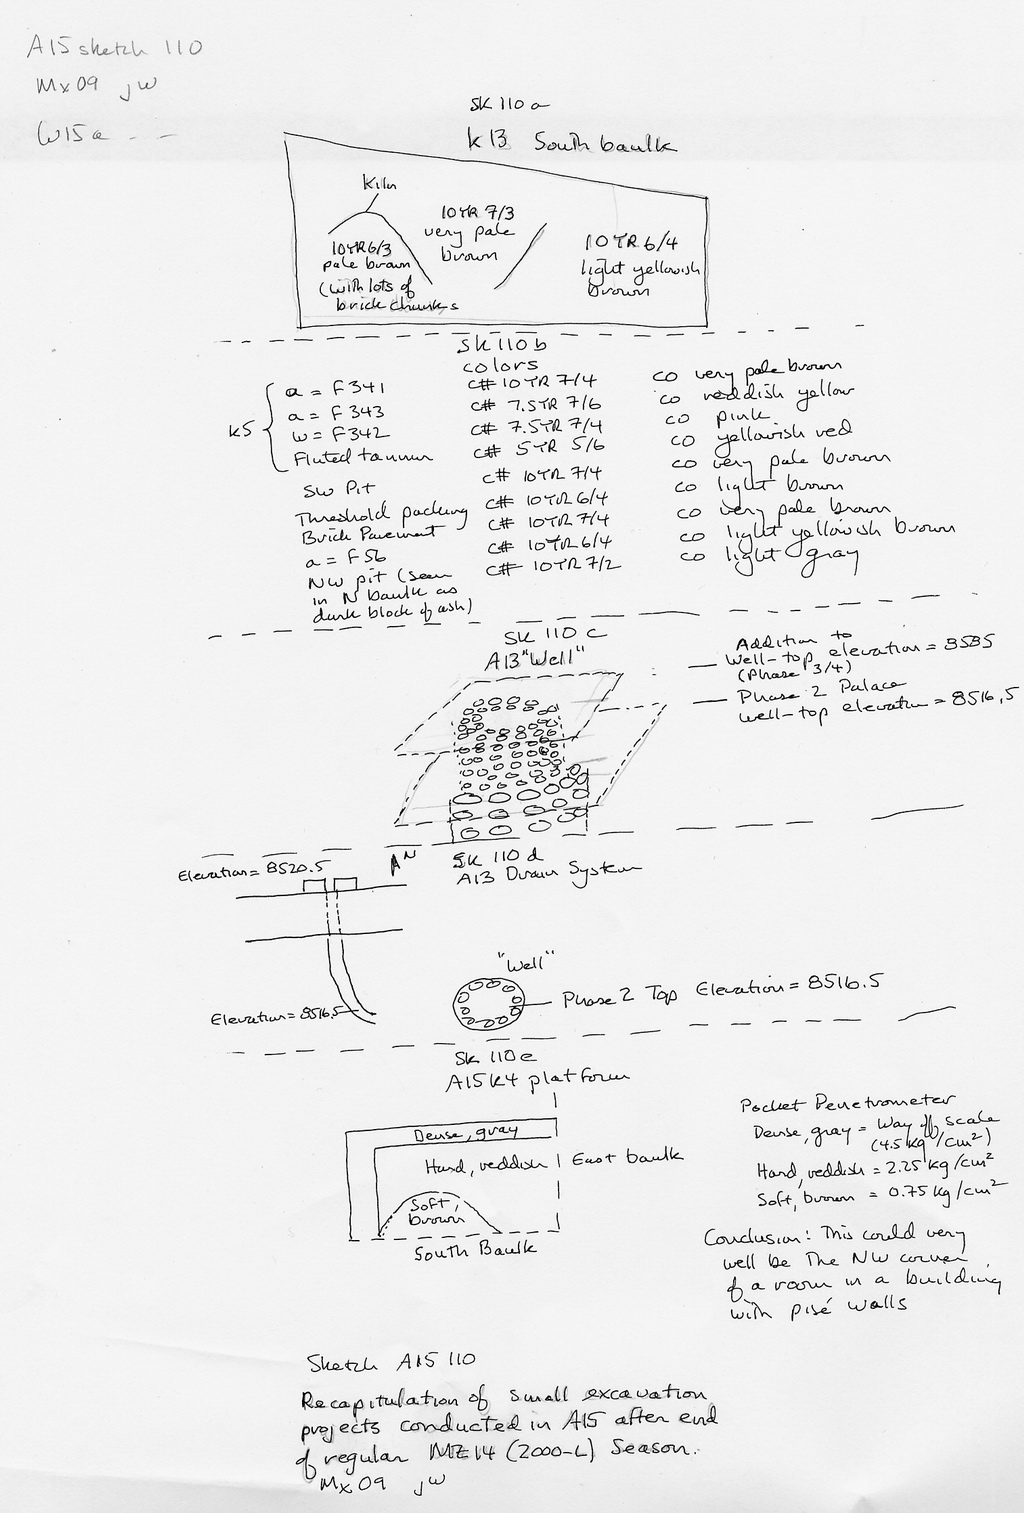 A15 sketch 110
Mx09 jw
W15a - -
SK 110 a
K13 South baulk
Kiln
10YR 6/3
pale brown
(with lots of
brick chunks
10YR 7/3
very pale
brown
10YR 6/4
light yellowish
brown
SK 110 b
colors
K5
a = F341 c# 10YR 7/4 co very pale brown
a = F343 c# 7.5YR 7/6 co reddish yellow
w = F342 c# 7.5YR 7/4 co pink
Fluted tannur c# 5YR 5/6 co yellowish red
SW Pit c# 10YR 7/4 co very pale brown
Threshold packing c# 10YR 6/4 co light brown
Brick Pavement c# 10YR 7/4 co very pale brown
a = F56 c# 10YR 6/4 co light yellowish brown
NW pit (seen c# 10YR 7/2 co light gray
in N baulk as
dark block of ash)
SK 110 c
A13 "Well"
Addition to
Well-top elevation = 8585
(Phase 3/4)
Phase 2 Palace
well-top elevation = 8516.5
SK 110 d
A13 Drain System
N
Elevation = 8520.5
Elevation = 8516.5
"Well"
Phase 2 Top Elevation = 8516.5
SK 110 e
A15 K4 platform
Dense, gray
Hard, reddish
East baulk
Soft,
brown
South Baulk
Pocket Penetrometer
Dense, gray = Way off scale
(4.5 kg/cm²)
Hard, reddish = 2.25 kg/cm²
Soft, brown = 0.75 kg/cm²
Conclusion: This could very
well be the NW corner
of a room in a building
with pisé walls
Sketch A15 110
Recapitulation of small excavation
projects conducted in A15 after end
of regular MZ14 (2000-L) Season.
Mx09 jw